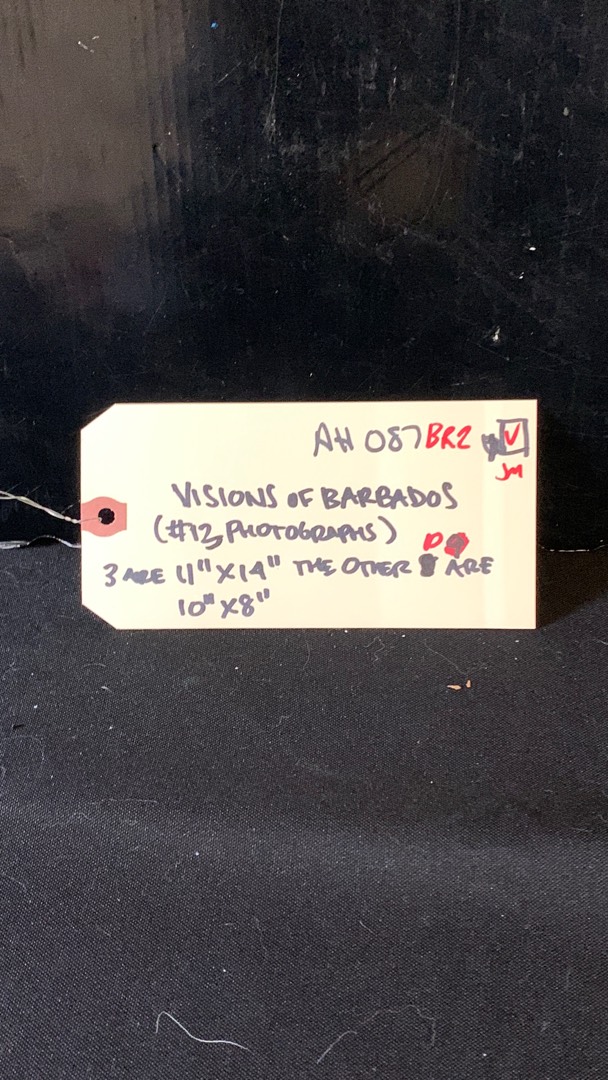 AH 087 BR2 V
JM
VISIONS OF BARBADOS
(#12, PHOTOGRAPHS)
3 ARE 11" X 14" THE OTHER ARE
10" X 8"